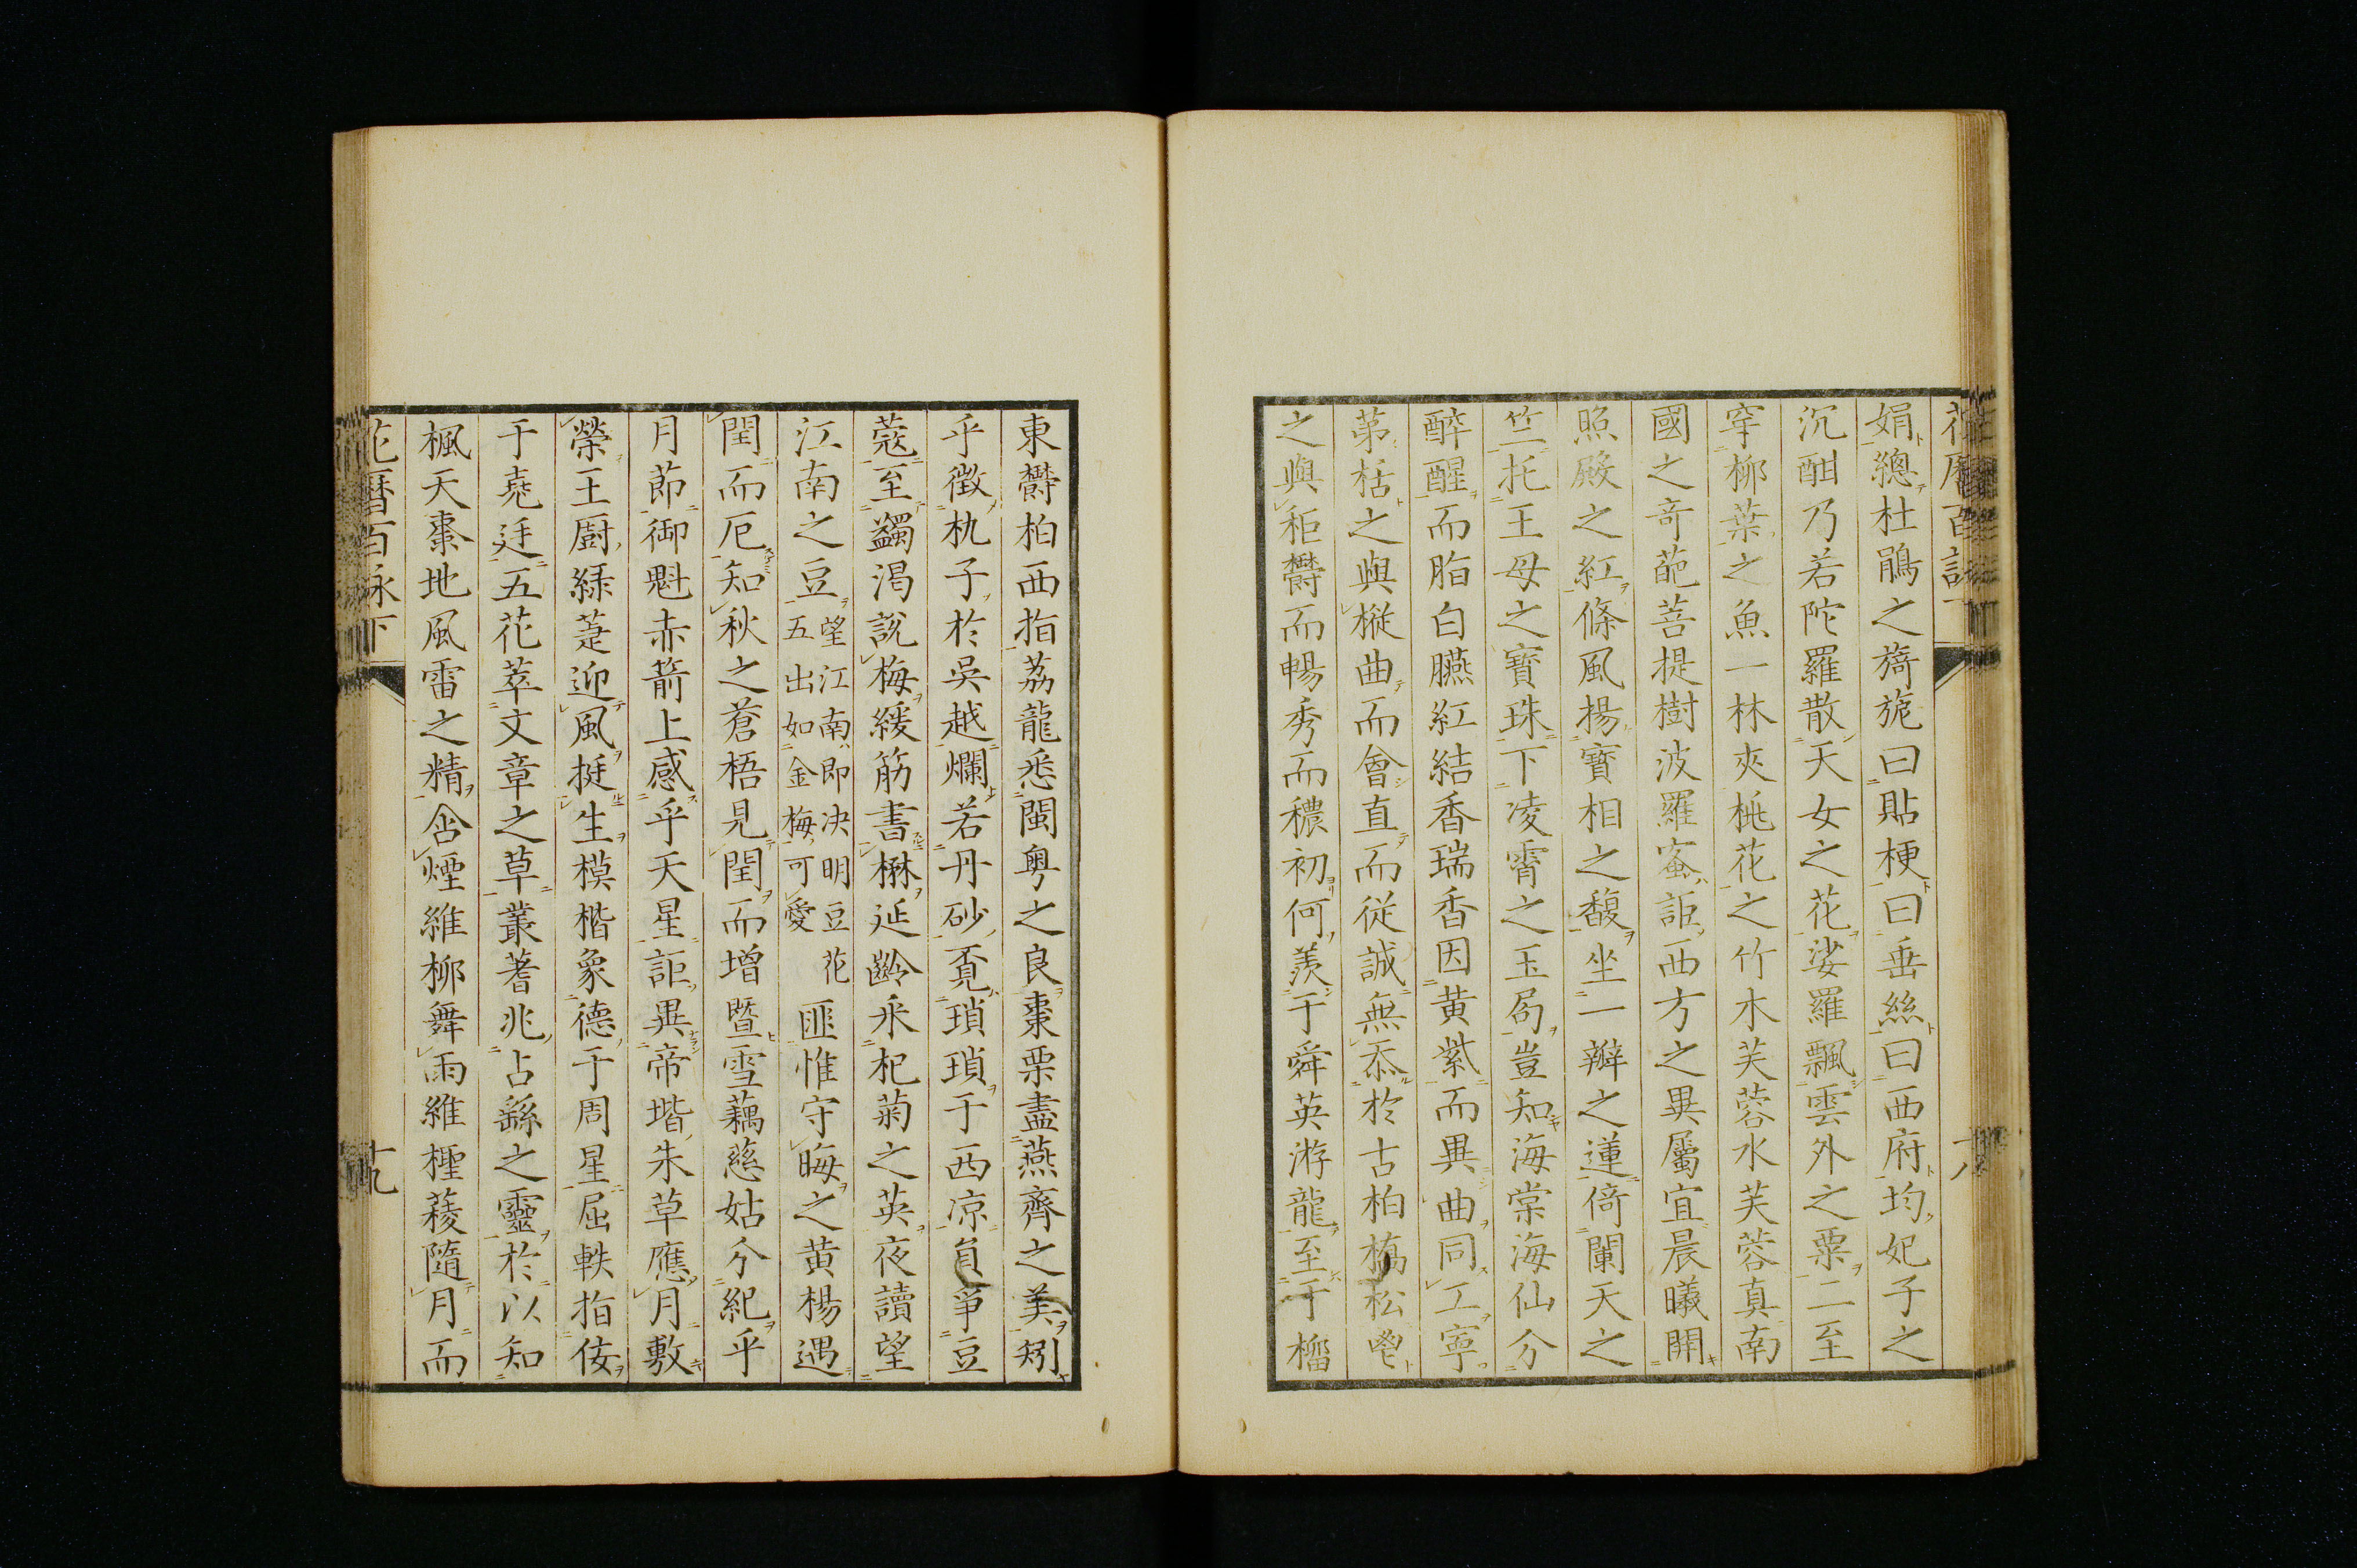 娟總杜鵑之旖旎曰貼梗曰垂絲曰西府均妃子之
沉酣乃若陀羅散天女之花娑羅飄雲外之粟二至
穿柳葉之魚一林夾桃花之竹木芙蓉水芙蓉真南
國之奇葩菩提樹波羅蜜詎西方之異屬宜晨曦開
照殿之紅條風揚寶相之馥坐一瓣之蓮倚闌天之
竺托王母之寶珠下凌霄之玉局豈知海棠海仙分
醉醒而脂白臙紅結香瑞香因黃紫而異曲同工寧
第栝之與樅曲而會直而從誠無忝於古柏槁松鬯
之與秬欝而暢秀而穠初何羨于舜英游龍至于榴
東欝柏西指荔龍悉閩粵之良棗栗盡燕齊之美矧
乎徵朹子於吳越爛若丹砂覔瑣瑣于西凉負爭豆
蔻至蠲渴說梅緩筋書楙延齡釆杞菊之英夜讀望
江南之豆望江南即决明豆花五出如金梅可愛匪惟守晦之黄楊遇
閏而厄知秋之蒼梧見閏而增暨雪藕慈姑分紀乎
月節御魁赤箭上感乎天星詎異帝堦朱草應月敷
榮王廚綠萐迎風挺生模楷象德于周星屈軼指佞
于堯廷五花萃文章之草叢蓍兆占繇之靈於以知
楓天棗地風雷之精含煙維柳舞雨維檉薐隨月而
花曆百詠下
十九